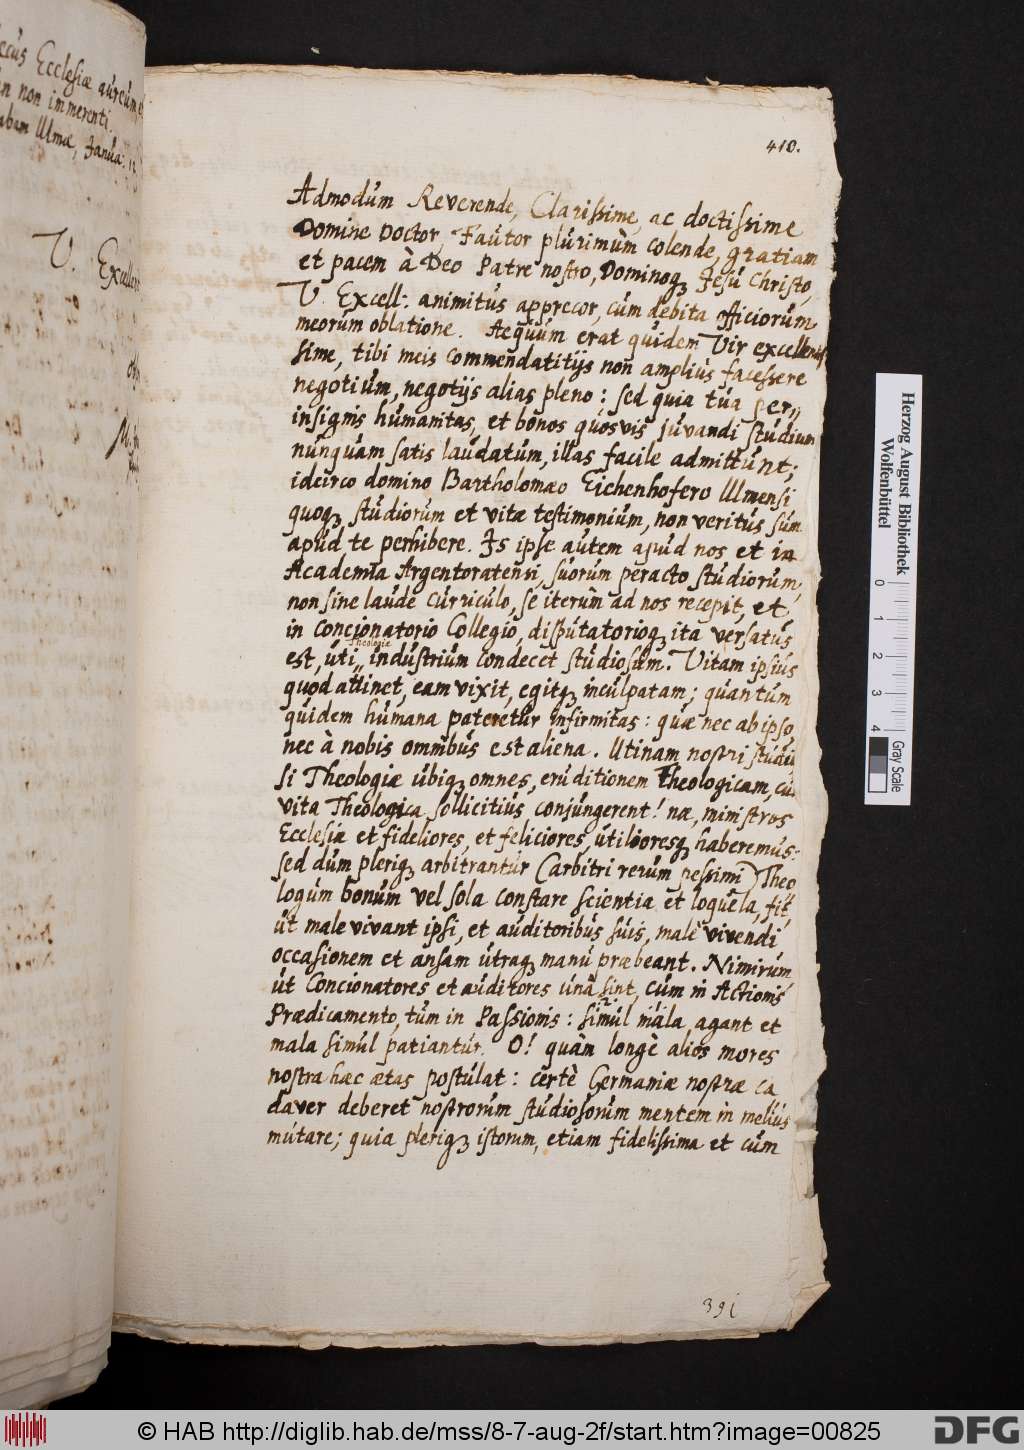 ecus Ecclesiæ aureum
n non immerenti.
abam Ulmæ, Janua. 12
V. Excellen
410.
Admodum Reverende, Clarissime, ac doctissime
Domine Doctor, Fautor plurimùm colende, gratiam
et pacem à Deo Patre nostro, Dominoqꝫ Jesu Christo,
V. Excell: animitus apprecor, cum debita officiorum
meorum oblatione. Aequum erat quidem Vir excellentis
sime, tibi meis commendatitijs non amplius facessere
negotium, negotijs alias pleno; sed quia tua per
insignis humanitas, et bonos quosvis juvandi studium
nunquam satis laudatum, illas facile admittunt;
idcirco domino Bartholomæo Eichenhofero Ulmensi
quoqꝫ studiorum et vitæ testimonium, non veritus sum
apud te perhibere. Is ipse autem apud nos et in
Academia Argentoratensi, suorum peracto studiorum,
non sine laude curriculo, se iterum ad nos recepit, et
in Concionatorio Collegio, disputatorioqꝫ ita versatus
Theologiæ
est, uti industrium condecet studiosum. Vitam ipsius
quod attinet, eam vixit, egitqꝫ inculpatam; quantum
quidem humana pateretur infirmitas: quæ nec ab ipso,
nec à nobis omnibus est aliena. Utinam nostri studio
si Theologiæ ubiqꝫ omnes, eruditionem Theologicam, cum
vita Theologica sollicitius conjungerent! næ, ministros
Ecclesiæ et fideliores, et feliciores, utilioresqꝫ haberemus:
sed dum pleriqꝫ arbitrantur (arbitri rerum pessimi) Theo
logum bonum vel sola constare scientia et loquela, fit,
ut male vivant ipsi, et auditoribus suis, malè vivendi
occasionem et ansam utraqꝫ manu præbeant. Nimirum
ut Concionatores et auditores unà sint, cùm in Actionis
Prædicamento, tùm in Passionis: simul mala, agant et
mala simul patiantur. O! quàm longè alios mores
nostra hæc ætas postulat: certè Germaniæ nostræ ca
daver deberet nostrorum studiosorum mentem in melius
mutare; quia pleriqꝫ istorum, etiam fidelissima et cum
391
Herzog August Bibliothek
Wolfenbüttel
0 1 2 3 4
Gray Scale
© HAB http://diglib.hab.de/mss/8-7-aug-2f/start.htm?image=00825
DFG